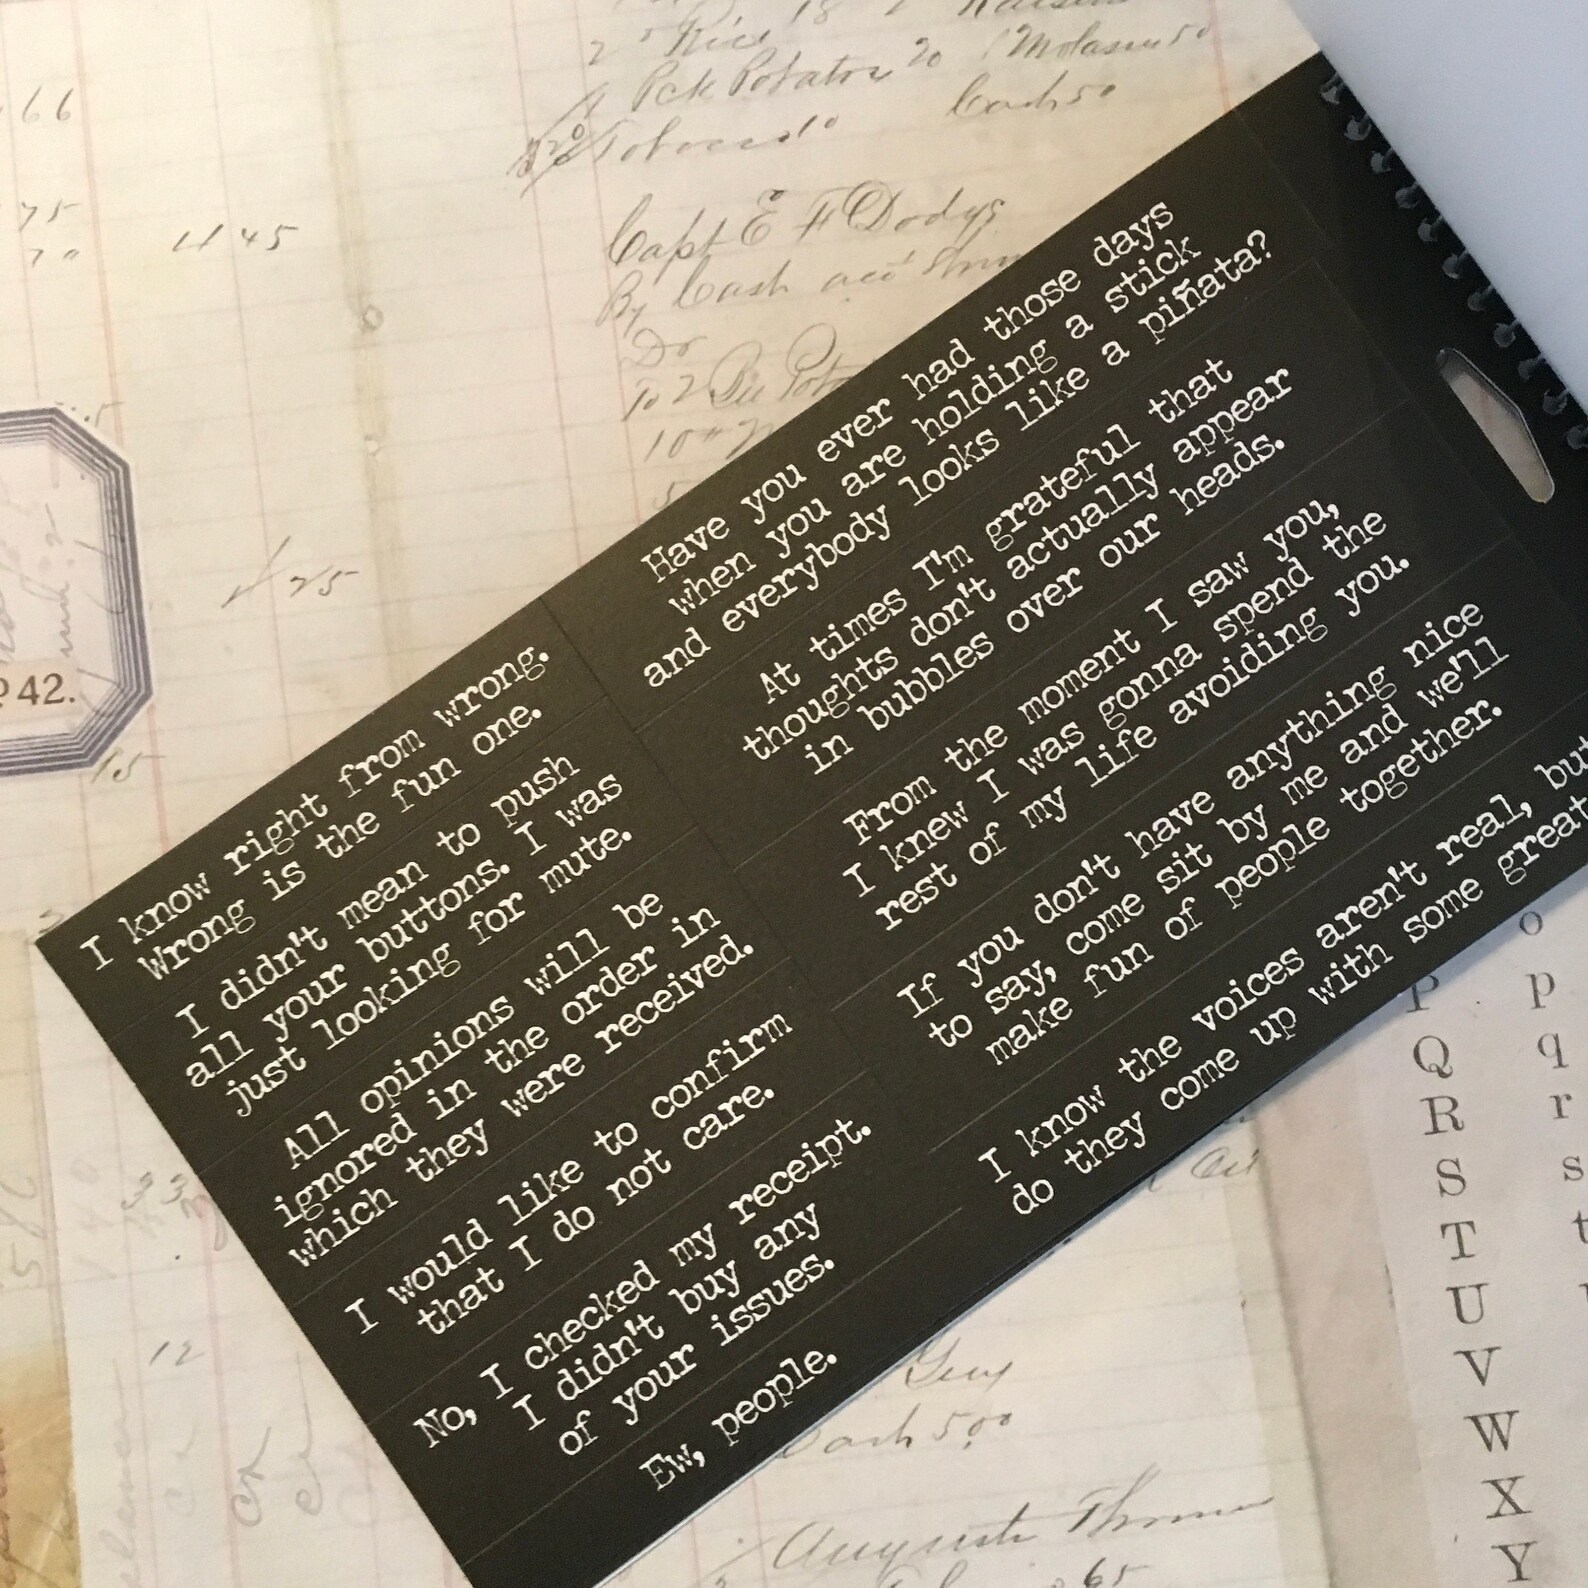 I know right from wrong.
Wrong is the fun one.
I didn't mean to push
all your buttons. I was
just looking for mute.
All opinions will be
ignored in the order in
which they were received.
I would like to confirm
that I do not care.
No, I checked my receipt.
I didn't buy any
of your issues.
Ew, people.
Have you ever had those days
when you are holding a stick
and everybody looks like a piñata?
At times I'm grateful that
thoughts don't actually appear
in bubbles over our heads.
From the moment I saw you,
I knew I was gonna spend the
rest of my life avoiding you.
If you don't have anything nice
to say, come sit by me and we'll
make fun of people together.
I know the voices aren't real, but
do they come up with some great
2 Rice 18
Pck Potatoes 20 Molasses 50
Tobacco 10 Cash 50
Capt E F Dodys
By Cash acct
Dr
66
75
70
4 45
1 25
42.
15
12
Cash 5.00
Augusta
65
o
P p
Q q
R r
S s
T t
U
V
W
X
Y